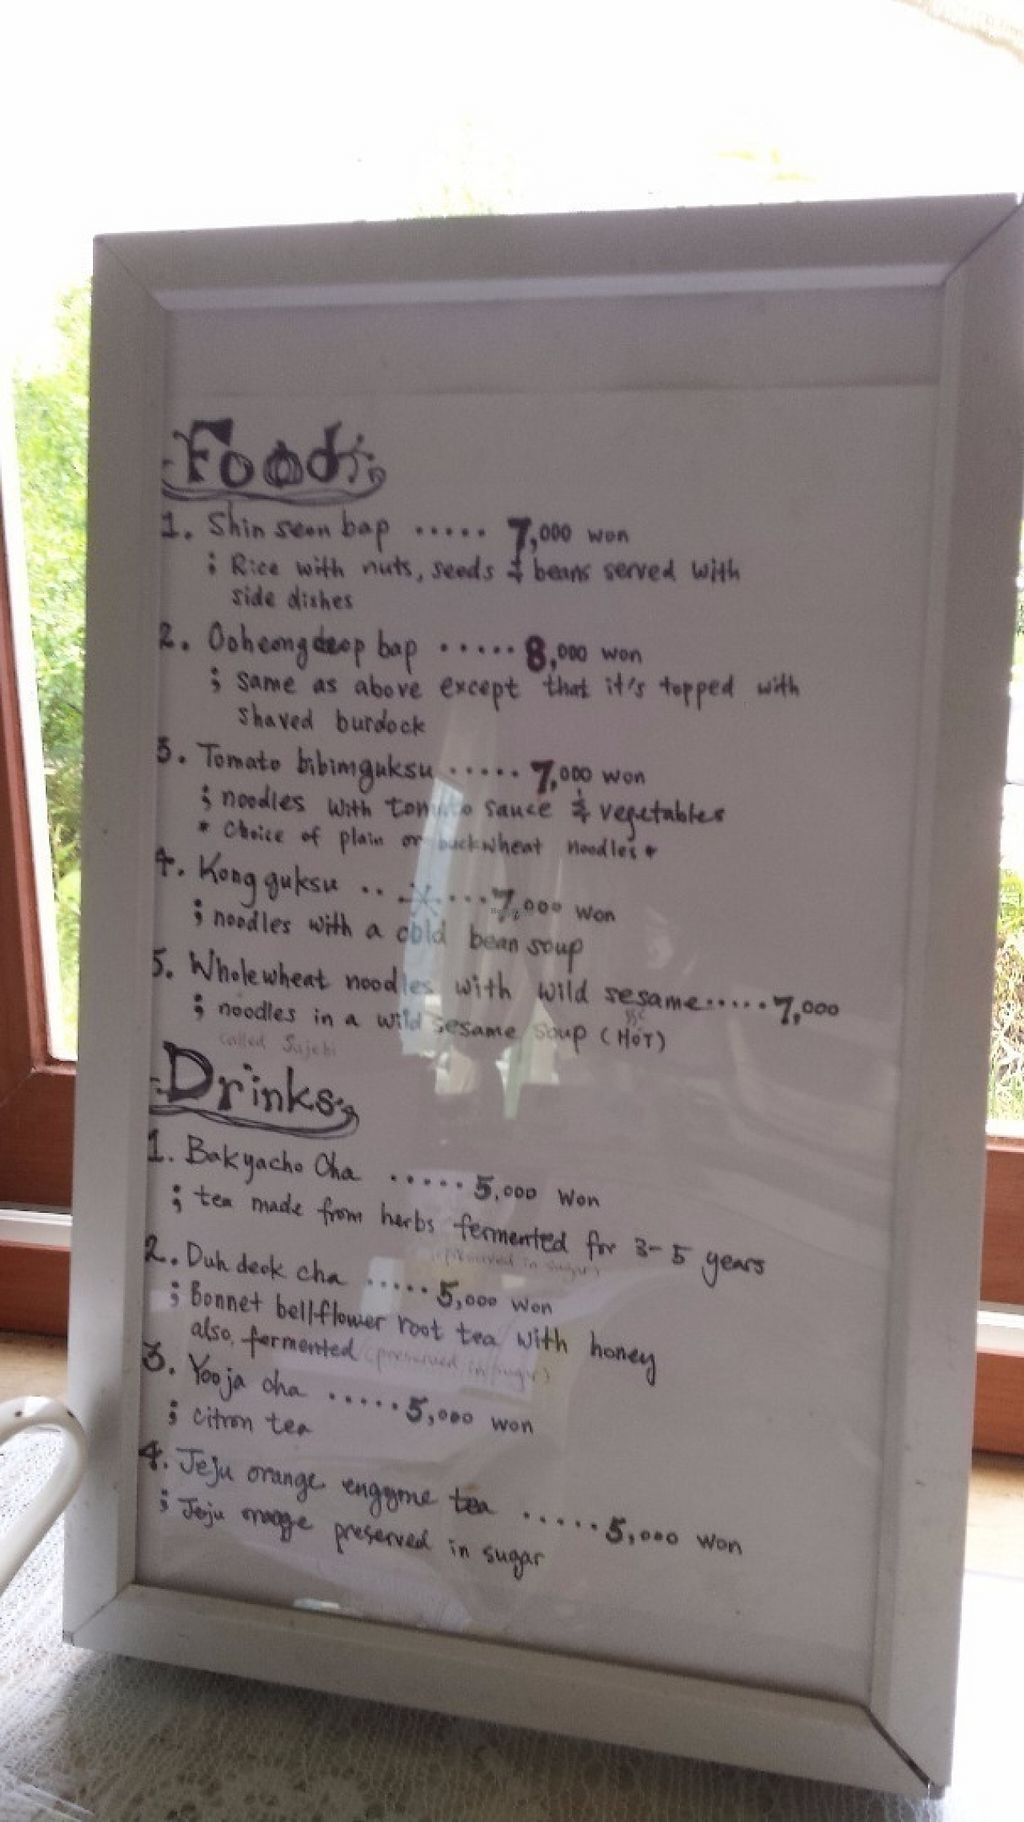 Food
1. Shin seon bap ..... 7,000 won
; Rice with nuts, seeds & beans served with
side dishes
2. Ooheongdeop bap ..... 8,000 won
; same as above except that it's topped with
shaved burdock
3. Tomato bibimguksu ..... 7,000 won
; noodles with tomato sauce & vegetables
* Choice of plain or buckwheat noodles *
4. Kong guksu ..*...7,000 won
; noodles with a cold bean soup
5. Wholewheat noodles with wild sesame.....7,000
; noodles in a wild sesame soup (HOT)
called Sujebi
Drinks
1. Bakyacho Cha ..... 5,000 won
; tea made from herbs fermented for 3-5 years
(preserved in sugar)
2. Duh deok cha ..... 5,000 won
; Bonnet bellflower root tea with honey
also, fermented (preserved in sugar)
3. Yooja cha ..... 5,000 won
; citron tea
4. Jeju orange engyme tea ..... 5,000 won
; Jeju orange preserved in sugar